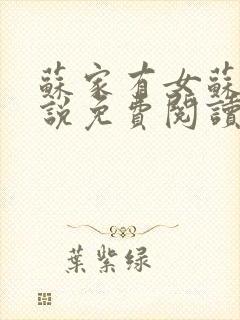 蘇家有女蘇
說免費閱讀
葉紫绿